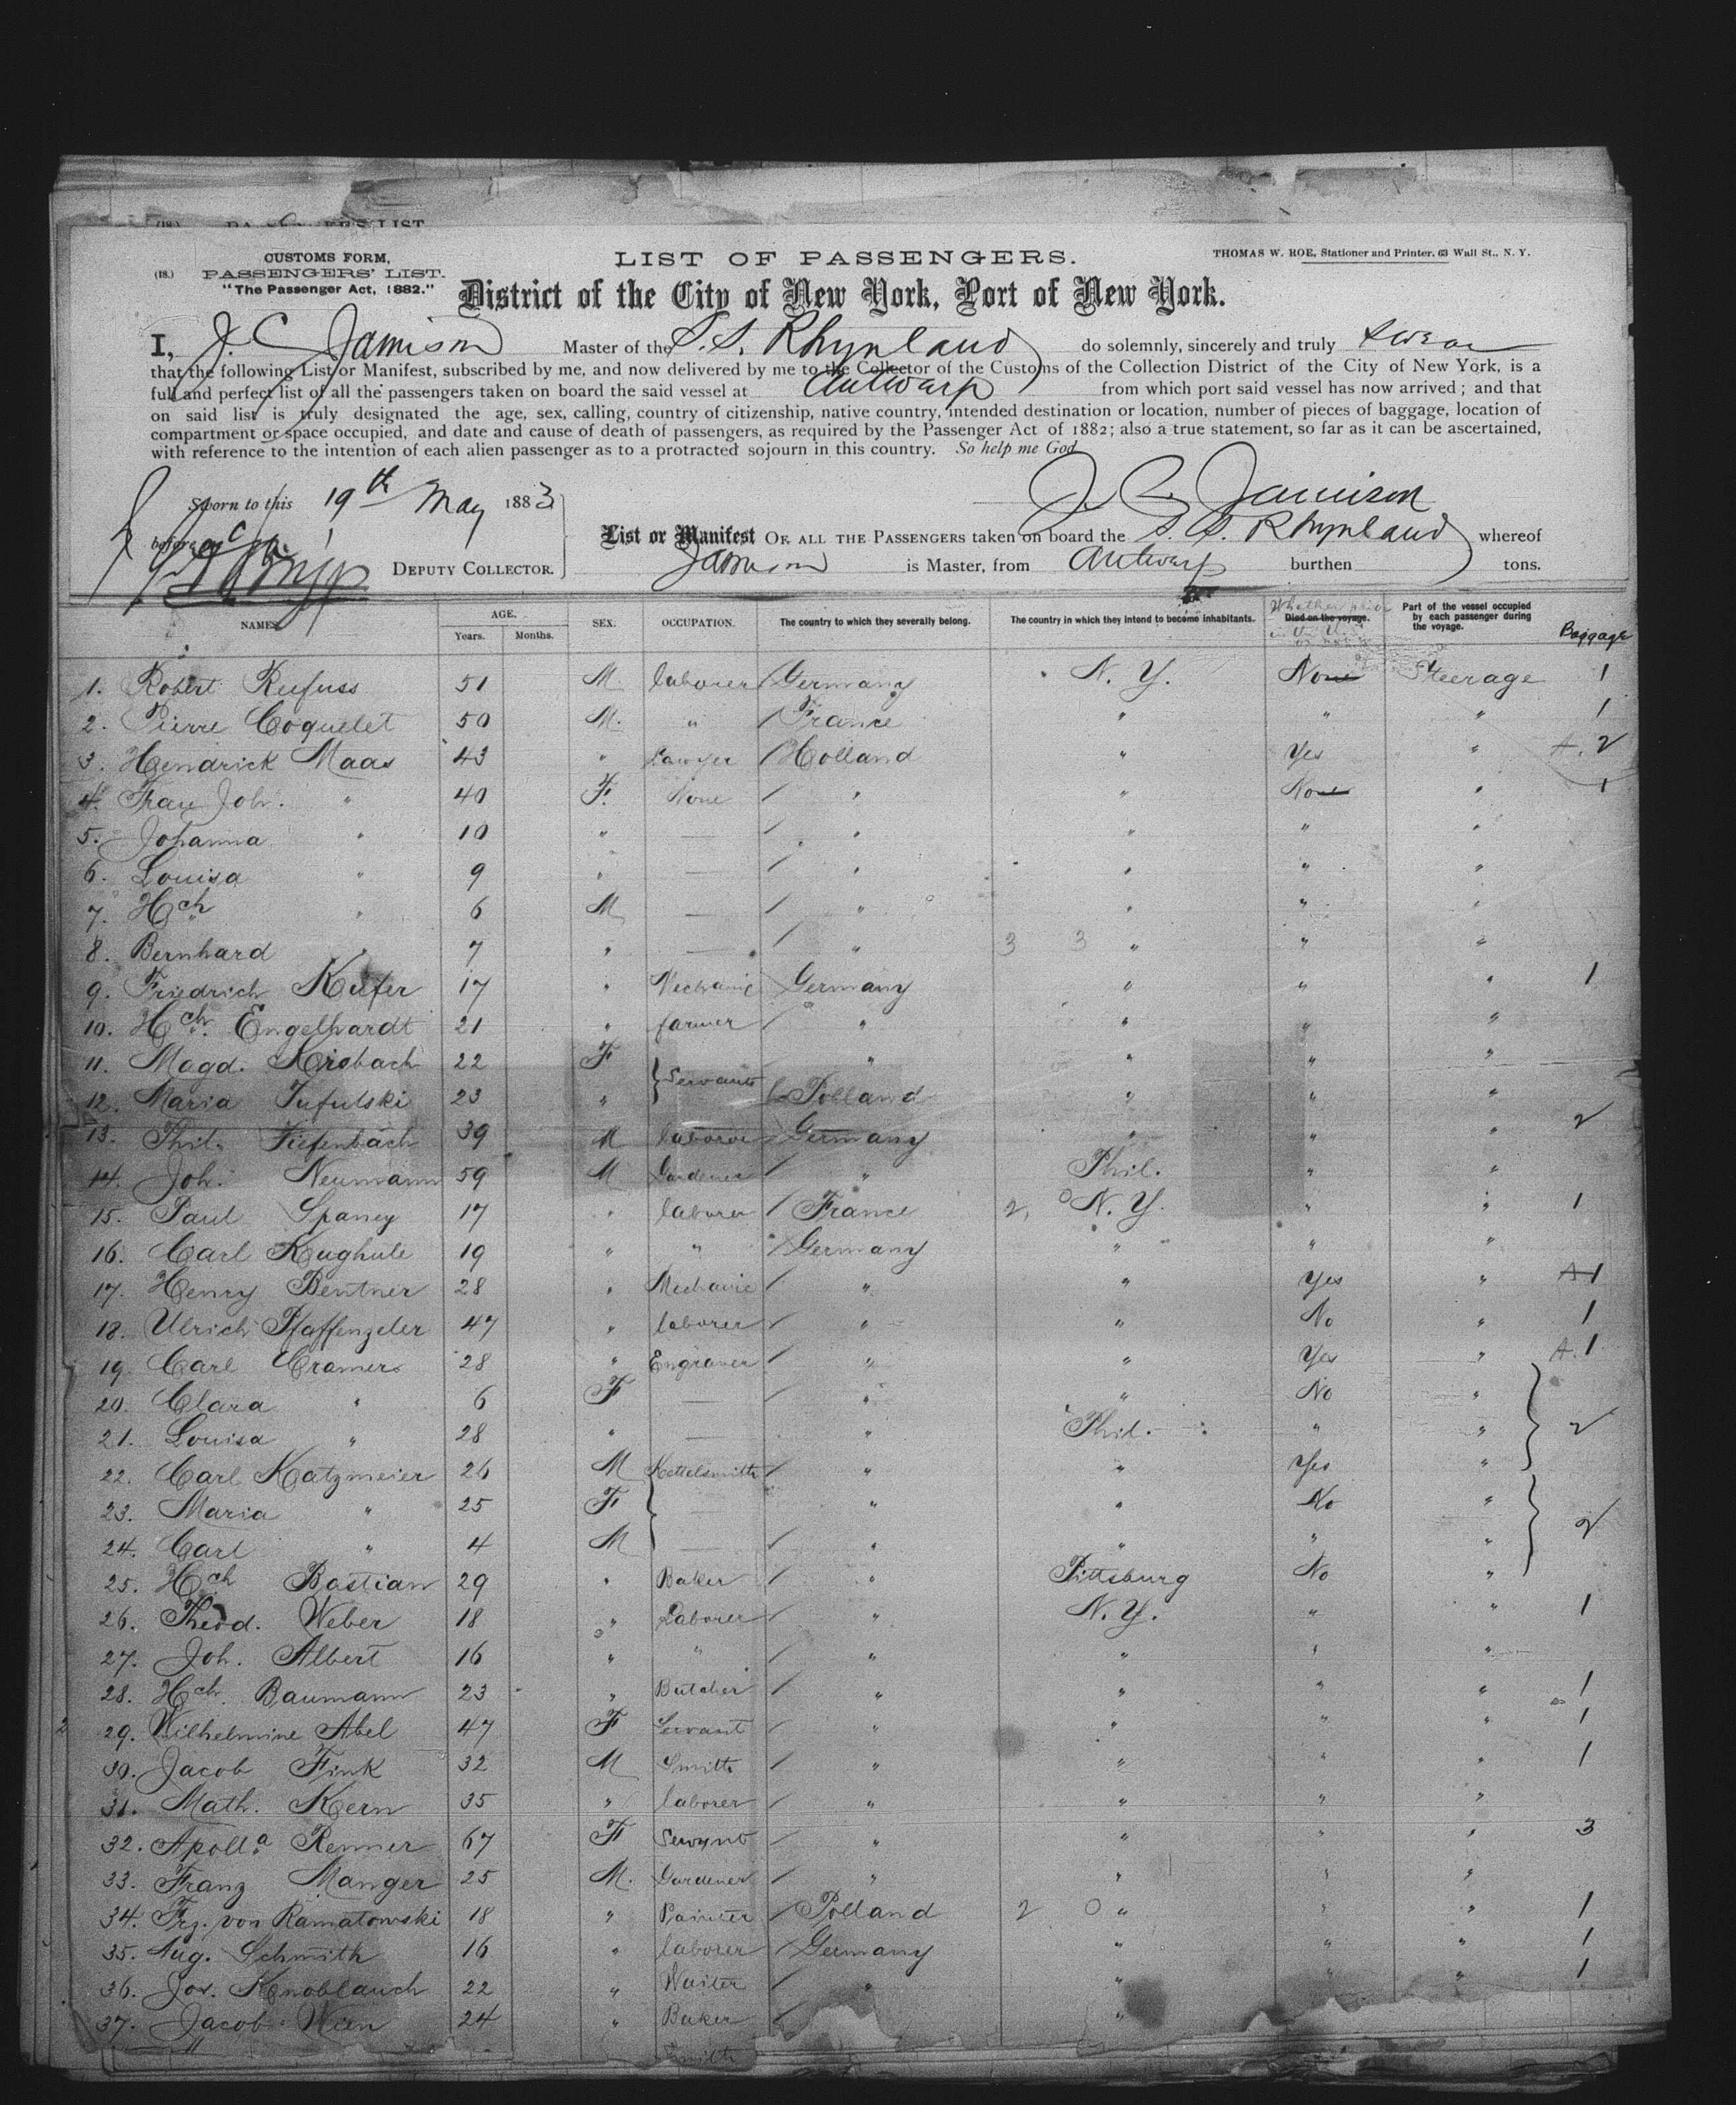 (18.) PASSENGERS' LIST
CUSTOMS FORM,
(18.) PASSENGERS' LIST.
"The Passenger Act, 1882."
LIST OF PASSENGERS.
THOMAS W. ROE, Stationer and Printer, 63 Wall St., N. Y.
District of the City of New York, Port of New York.
I, J. C. Jamison Master of the S.S. Rhynland do solemnly, sincerely and truly swear
that the following List or Manifest, subscribed by me, and now delivered by me to the Collector of the Customs of the Collection District of the City of New York, is a
full and perfect list of all the passengers taken on board the said vessel at Antwarp from which port said vessel has now arrived; and that
on said list is truly designated the age, sex, calling, country of citizenship, native country, intended destination or location, number of pieces of baggage, location of
compartment or space occupied, and date and cause of death of passengers, as required by the Passenger Act of 1882; also a true statement, so far as it can be ascertained,
with reference to the intention of each alien passenger as to a protracted sojourn in this country. So help me God
Sworn to this 19th May 1883
J. C. Jamison
before me
List or Manifest OF ALL THE PASSENGERS taken on board the S. S. Rhynland whereof
DEPUTY COLLECTOR. Jamison is Master, from Antwarp burthen tons.
NAMES. AGE. Years. Months. SEX. OCCUPATION. The country to which they severally belong. The country in which they intend to become inhabitants. Died on the voyage. Part of the vessel occupied by each passenger during the voyage. Baggage
1. Robert Rufuss 51 M. laborer / Germany N. Y. None Steerage 1
2. Pierre Coquelet 50 M. " / France " " " 1
3. Hendrick Maas 43 " Lawyer / Holland " Yes " A. 2
4. Frau Joh. " 40 F. None / " " None " 1
5. Johanna " 10 " — / " " " "
6. Louisa " 9 " — / " " " "
7. Hch " 6 M — / " " " "
8. Bernhard " 7 " — / " 3 3 " " "
9. Friedrich Kufer 17 " Mechanic Germany " " " 1
10. Hch. Engelhardt 21 " farmer / " " " "
11. Magd. Krisbach 22 F } Servants " " " "
12. Maria Tufulski 23 " Polland " " "
13. Phil. Tiefenbach 39 M laborer / Germany " " " 2
14. Joh. Neumann 59 M Gardener / " Phil. " "
15. Paul Spaney 17 " laborer / France 2, O N. Y. " " 1
16. Carl Kughule 19 " " / Germany " " "
17. Henry Bentner 28 " Mechanic / " " Yes " A 1
18. Ulrich Pfaffenzeler 47 " laborer / " " No " 1
19. Carl Cramers 28 " Engraver / " " Yes " A. 1
20. Clara " 6 F — / " " No "
21. Louisa " 28 " — " Phil. " " 2
22. Carl Katzmeier 26 M Kettelsmith / " " Yes "
23. Maria " 25 F — " " No "
24. Carl " 4 M — / " " " " 2
25. Hch Bastian 29 " Baker / " Pittsburg No "
26. Theod. Weber 18 " Laborer / " N. Y. " " 1
27. Joh. Albert 16 " " / " " " "
28. Hch. Baumann 23 " Butcher / " " " " 1
2 29. Wilhelmine Abel 47 F Servant / " " " " 1
30. Jacob Fink 32 M Smith / " " " " 1
31. Math. Kern 35 " laborer / " " " "
32. Apolla Renner 67 F Servant / " " " " 3
33. Franz Manger 25 M. Gardener / " " " "
34. Frz. von Ramatowski 18 " Painter / Polland 2 O " " " 1
35. Aug. Schmith 16 " laborer / Germany " " " 1
36. Jos. Knoblauch 22 " Waiter / " " " " 1
37. Jacob Wien 24 " Baker / "
Smith